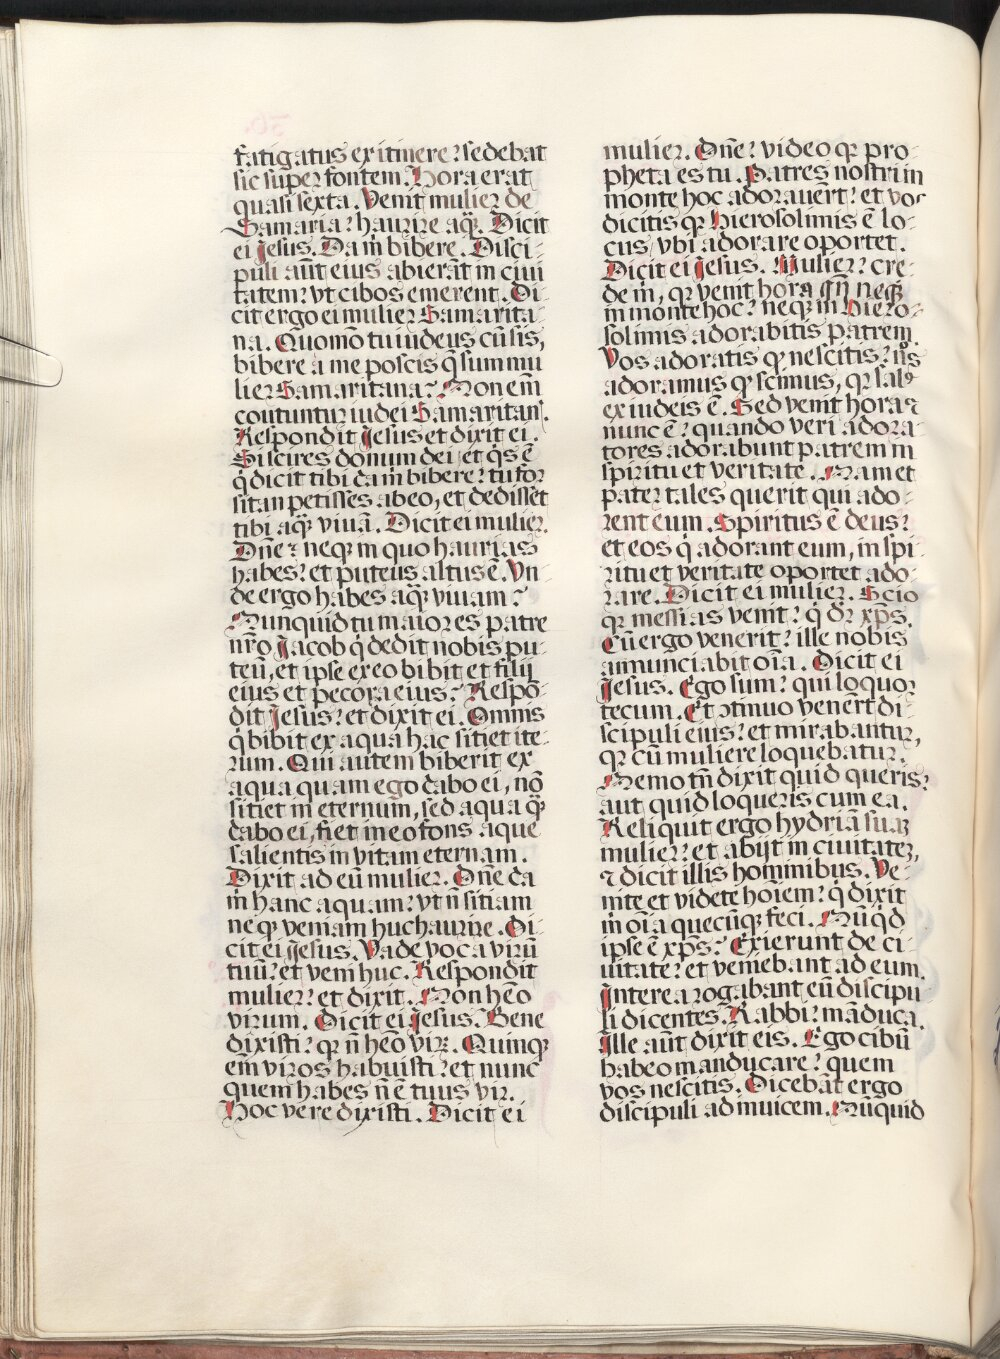 fatigatus ex itinere? sedebat
sic super fontem. Hora erat
quasi sexta. Venit mulier de
Samaria? haurire aq̃. Dicit
ei Jesus. Da m̃ bibere. Disci-
puli aut̃ eius abierãt in ciui
tatem? vt cibos emerent. Di-
cit ergo ei mulier Samarita-
na. Quomõ tu iudeus cũ sis,
bibere a me poscis q̃ sum mu
lier Samaritana? Non em̃
coutuntur iudei Samaritanʼ.
Respondit Jesus et dixit ei.
Si scires donum dei et q̓s ẽ
q̓ dicit tibi da m̃ bibere? tu for
sitan petisses ab eo, et dedisset
tibi aq̃ viuã. Dicit ei mulier.
Dñe? neqꝫ in quo haurias
habes? et puteus altus ẽ. Vn-
de ergo habes aq̃ viuam?
Nunquid tu maior es patre
nr̃o Jacob q̓ dedit nobis pu-
teũ, et ipse ex eo bibit et filij
eius et pecora eius? Respõ-
dit Jesus? et dixit ei. Omnis
q̓ bibit ex aqua hac sitiet ite-
rum. Qui autem biberit ex
aqua quam ego dabo ei, nõ
sitiet in eternum, sed aqua q̃
dabo ei, fiet in eo fons aque
salientis in vitam eternam.
Dixit ad eũ mulier. Dñe da
m̃ hanc aquam? vt ñ sitiam
neqꝫ veniam huc haurire. Di-
cit ei Jesus. Vade voca virũ
tuũ? et veni huc. Respondit
mulier? et dixit. Non hẽo
virum. Dicit ei Jesus. Bene
dixisti? qꝛ ñ hẽo virꝫ. Quinqꝫ
em̃ viros habuisti? et nunc
quem habes ñ ẽ tuus vir.
Hoc vere dixisti. Dicit ei
mulier. Dñe? video qꝛ pro-
pheta es tu. Patres nostri in
monte hoc adorauer̃t? et vos
dicitis qꝛ Hierosolimis ẽ lo-
cus vbi adorare oportet.
Dicit ei Jesus. Mulier? cre-
de m̃, qꝛ venit hora qñ neqꝫ
in monte hoc? neqꝫ in Hiero-
solimis adorabitis patrem.
Vos adoratis qͩ nescitis? nos
adoramus qͩ scimus, qꝛ salꝰ
ex iudeis ẽ. Sed venit hora ⁊
nunc ẽ? quando veri adora-
tores adorabunt patrem in
spiritu et veritate. Nam et
pater tales querit qui ado-
rent eum. Spiritus ẽ deus?
et eos q̓ adorant eum, in spi-
ritu et veritate oportet ado-
rare. Dicit ei mulier. Scio
qꝛ messias venit? q̓ dr̃ xp̃s.
Cũ ergo venerit? ille nobis
annunciabit oĩa. Dicit ei
Jesus. Ego sum? qui loquor
tecum. Et ꝯtinuo vener̃t di-
scipuli eius? et mirabantur,
qꝛ cũ muliere loquebatur.
Nemo tñ dixit quid queris?
aut quid loqueris cum ea.
Reliquit ergo hydriã suaꝫ
mulier? et abijt in ciuitateꝫ,
⁊ dicit illis hominibus. Ve-
nite et videte hoĩem? q̓ dixit
m̃ oĩa quecũqꝫ feci. Nũq̓d
ipse ẽ xp̃s? Exierunt de ci-
uitate? et veniebant ad eum.
Interea rogabant eũ discipu
li dicentes. Rabbi? mãduca.
Ille aut̃ dixit eis. Ego cibũ
habeo manducare? quem
vos nescitis. Dicebãt ergo
discipuli ad inuicem. Nũquid